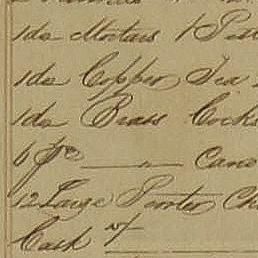 1 do Mortars 1 Pest
1 do Copper Tea
1 do Brass Cocks
6 pr — " — Cano
12 Large Pewter Ch
Cash of